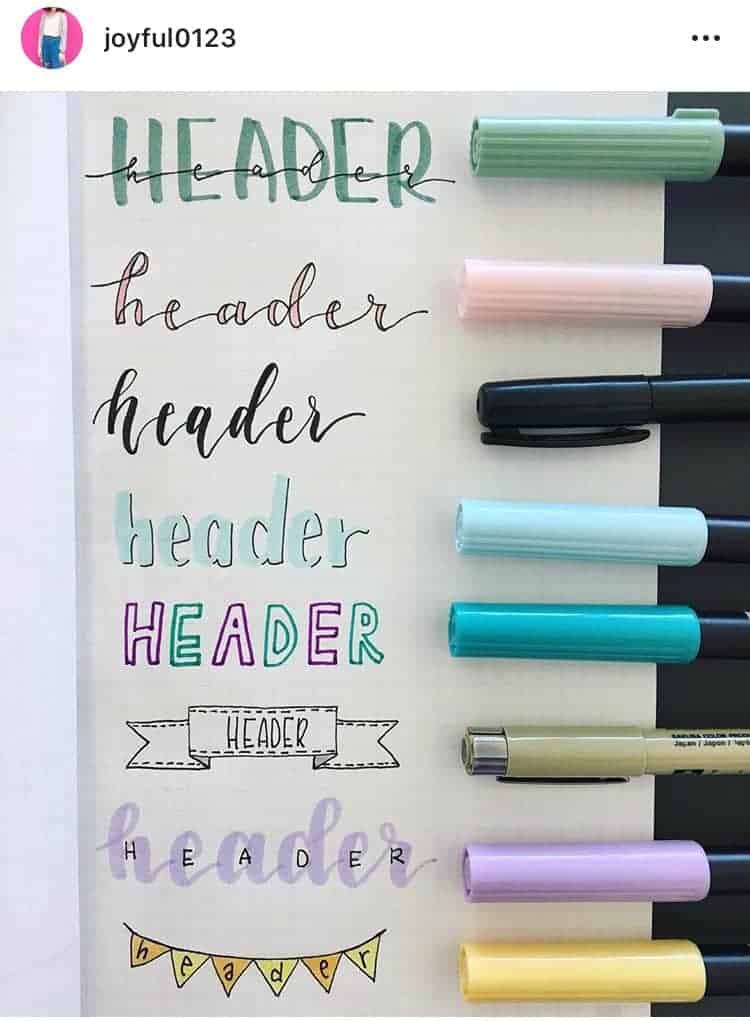 joyful0123
HEADER
header
header
header
header
HEADER
HEADER
SAKURA COLOR PRODU
Japan / Japon /
header
HEADER
header